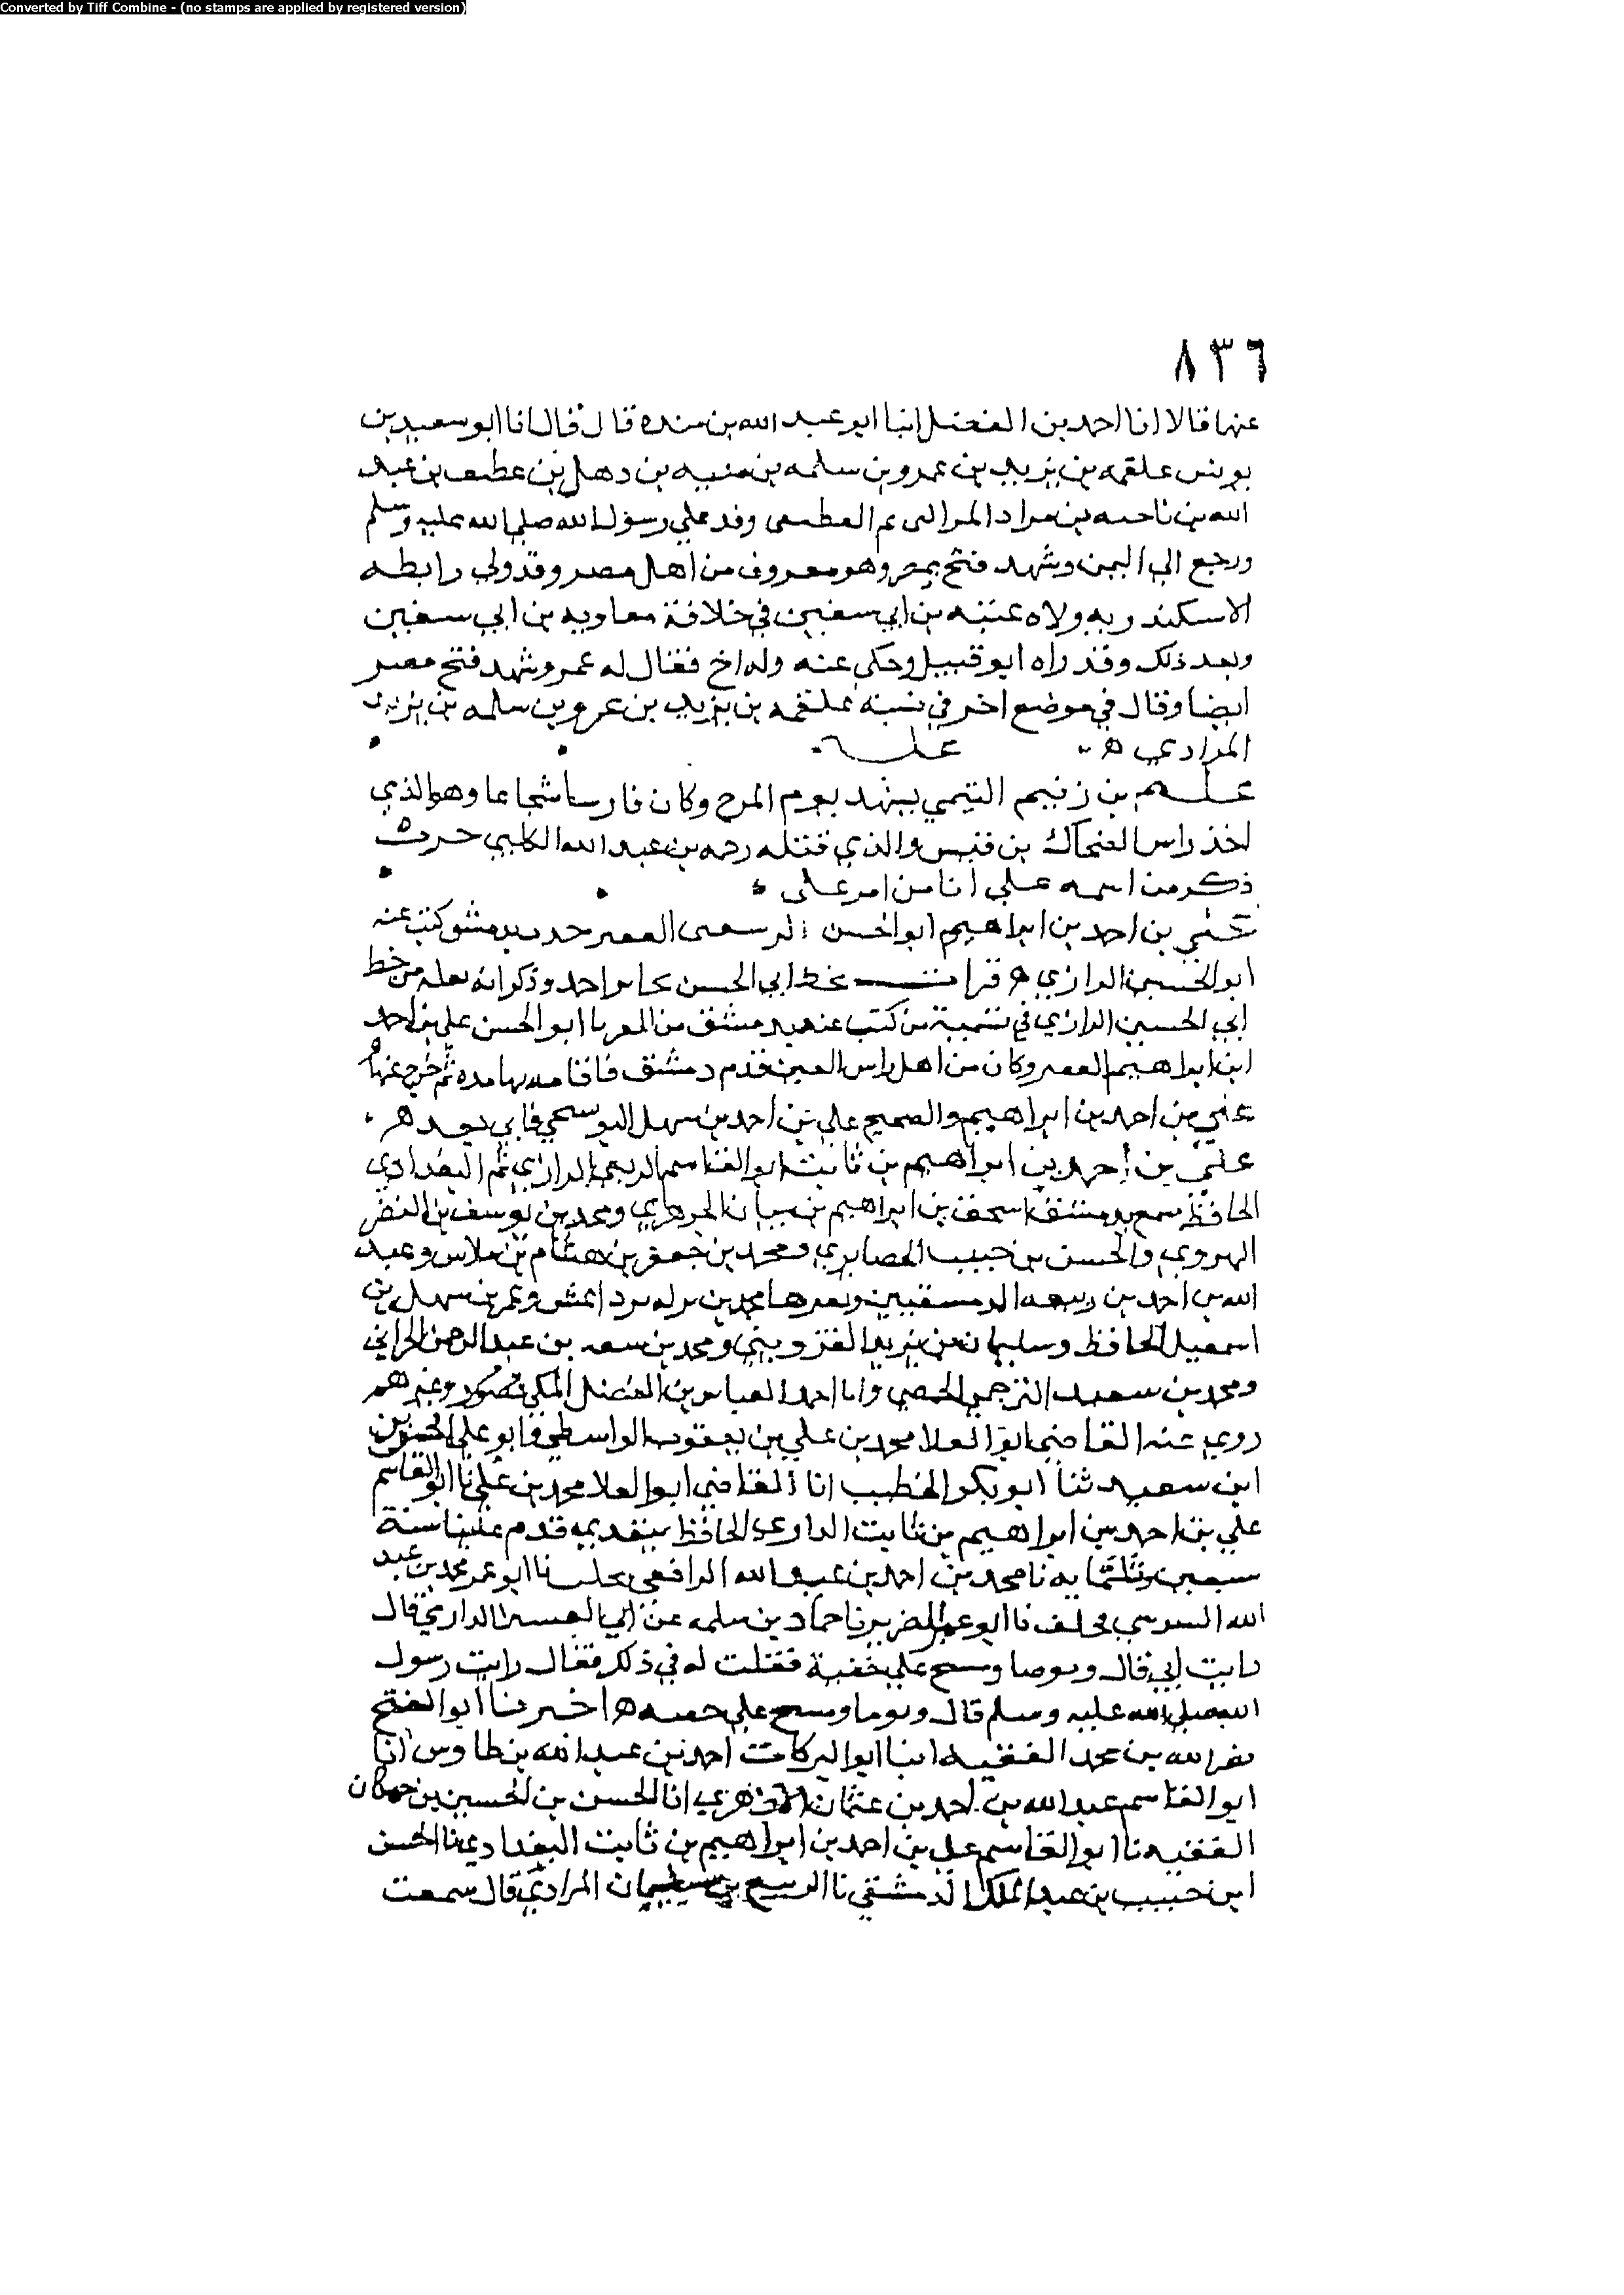 Converted by Tiff Combine - (no stamps are applied by registered version)
٨٣٦
عنها قالا انا احمد بن الفضل انبا ابو عبد الله بن منده قال قال انا ابو سعيد بن
يونس علقمه بن يزيد بن عمرو بن سلمه بن منبه بن دهل بن عطيف بن عبد
الله بن ناحيه بن مراد المرادى ثم العطيفى وفد علي رسول الله صلي الله عليه وسلم
ورجع الي اليمن وشهد فتح مصر وهو معروف من اهل مصر وقد ولي رابطه
الاسكندريه ولاه عتبه بن ابي سفين في خلافة معاويه بن ابي سفين
وبعد ذلك وقد راه ابو قبيل وحكي عنه وله اخ فقال له عمرو شهد فتح مصر
ايضا وقال في موضع اخر في نسبه علقمه بن يزيد بن عمرو بن سلمه بن يزيد
المرادي ه
علـــم بن زنيم التيمي يشهد يوم المرج وكان فارسا شجاعا وهو الذي
اخذ راس الضحاك بن قيس والذي قتله رحمه بن عبد الله الكلبي حرف
ذكر من اسمه علي انا من امر علي
علي بن احمد بن ابراهيم ابو الحسن كتب عنه
ابو الحسين الرازي ه قرات بخط ابي الحسن نجا بن احمد وذكر انه نقله من خط
ابي الحسين الرازي في تسمية من كتب عنه بدمشق من الغربا ابو الحسن علي بن احمد
ابن ابراهيم وكان من اهل راس العين قدم دمشق فاقام بها مده ثم خرج عنها
علي بن احمد بن ابراهيم والصحيح علي بن احمد بن سهل البوسنجي ياتي بعد ه
علي بن احمد بن ابراهيم بن ثابت ابو القاسم الربعي الرازي ثم البغدادي
الحافظ سمع بدمشق اسحق بن ابراهيم بن بيان الجوهري ومحمد بن يوسف بن النضر
الهروي والحسن بن حبيب الحصايري ومحمد بن جعفر بن هشام بن ملاس وعبد
الله بن احمد بن ربيعه الدمشقيين وبغيرها محمد بن وعمر بن سهل بن
اسمعيل الحافظ وسليمان بن يزيد القزويني ومحمد بن سعيد بن عبد الرحمن الحراني
ومحمد بن سعيد الترخمي الحمصي وانا احمد العباس بن الفضل المكي بصور وغيرهم
روي عنه القاضي ابو العلا محمد بن علي بن يعقوب الواسطي وابو علي الحسن بن
ابن سعيد ثنا ابو بكر الخطيب انا القاضي ابو العلا محمد بن علي نا ابو القاسم
علي بن احمد بن ابراهيم بن ثابت الرازي الحافظ قدم علينا سنة
سبعين وثلثمايه نا محمد بن احمد بن عبد الله الرافقي بحلب نا ابو عمر محمد بن عبد
الله السوسي بحلب نا ابو عمر الضرير نا حماد بن سلمه عن ابي العسرا الدارمي قال
رايت ابي قال وتوضا ومسح علي خفيه فقلت له في ذلك فقال رايت رسول
الله صلي الله عليه وسلم قال وتوضا ومسح علي خفيه ه اخبرنا ابو الفتح
نصر الله بن محمد الفقيه انبا ابو البركات احمد بن عبد الله بن طاوس انا
ابو القاسم عبد الله بن احمد بن عثمان الازهري انا الحسن بن الحسين بن حمكان
الفقيه نا ابو القاسم علي بن احمد بن ابراهيم بن ثابت البغدادي نا الحسن
ابن حبيب بن عبد الملك الدمشقي نا الربيع بن سليمان المرادي قال سمعت